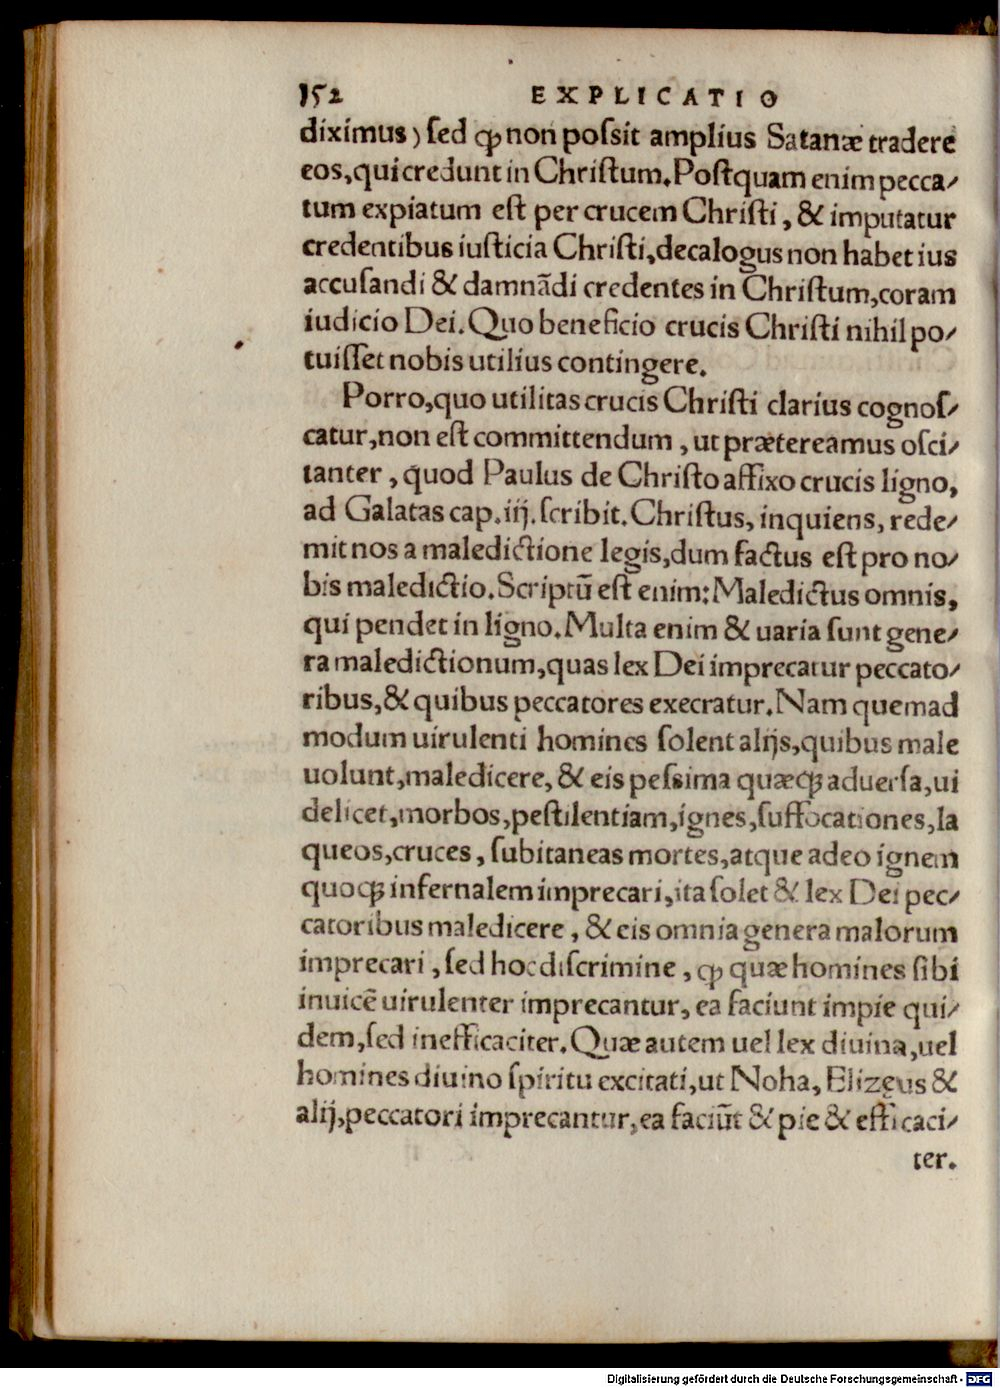 152 EXPLICATIO
diximus) ſed ꝙ non poſsit amplius Satanæ tradere
eos, qui credunt in Chriſtum. Poſtquam enim pecca⸗
tum expiatum eſt per crucem Chriſti, & imputatur
credentibus iuſticia Chriſti, decalogus non habet ius
accuſandi & damnādi credentes in Chriſtum, coram
iudicio Dei. Quo beneficio crucis Chriſti nihil po⸗
tuiſſet nobis utilius contingere.
Porro, quo utilitas crucis Chriſti clarius cognoſ⸗
catur, non eſt committendum, ut prætereamus oſci⸗
tanter, quod Paulus de Chriſto affixo crucis ligno,
ad Galatas cap. iij. ſcribit. Chriſtus, inquiens, rede⸗
mit nos a maledictione legis, dum factus eſt pro no⸗
bis maledictio. Scriptū eſt enim: Maledictus omnis,
qui pendet in ligno. Multa enim & uaria ſunt gene⸗
ra maledictionum, quas lex Dei imprecatur peccato⸗
ribus, & quibus peccatores execratur. Nam quemad
modum uirulenti homines ſolent alijs, quibus male
uolunt, maledicere, & eis peſsima quæqꝫ aduerſa, ui
delicet, morbos, peſtilentiam, ignes, ſuffocationes, la
queos, cruces, ſubitaneas mortes, atque adeo ignem
quoqꝫ infernalem imprecari, ita ſolet & lex Dei pec⸗
catoribus maledicere, & eis omnia genera malorum
imprecari, ſed hoc diſcrimine, ꝙ quæ homines ſibi
inuicē uirulenter imprecantur, ea faciunt impie qui⸗
dem, ſed inefficaciter. Quæ autem uel lex diuina, uel
homines diuino ſpiritu excitati, ut Noha, Elizeus &
alij, peccatori imprecantur, ea faciūt & pie & efficaci⸗
ter.
Digitalisierung gefördert durch die Deutsche Forschungsgemeinschaft - DFG